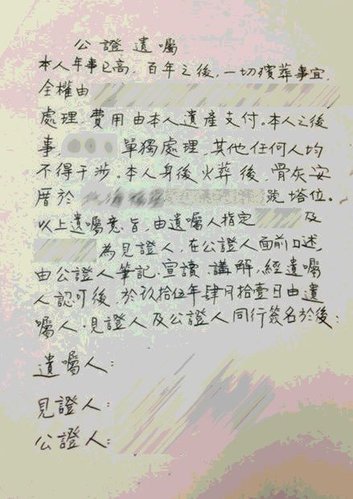 公證遺囑
本人年事已高,百年之後,一切殯葬事宜,
全權由
處理,費用由本人遺產支付。本人之後
事 單獨處理,其他任何人均
不得干涉。本人身後火葬後,骨灰安
厝於 號塔位。
以上遺囑意旨,由遺囑人指定 及
為見證人,在公證人面前口述,
由公證人筆記、宣讀、講解,經遺囑
人認可後,於玖拾伍年肆月拾壹日由遺
囑人、見證人及公證人同行簽名於後:
遺囑人:
見證人:
公證人: